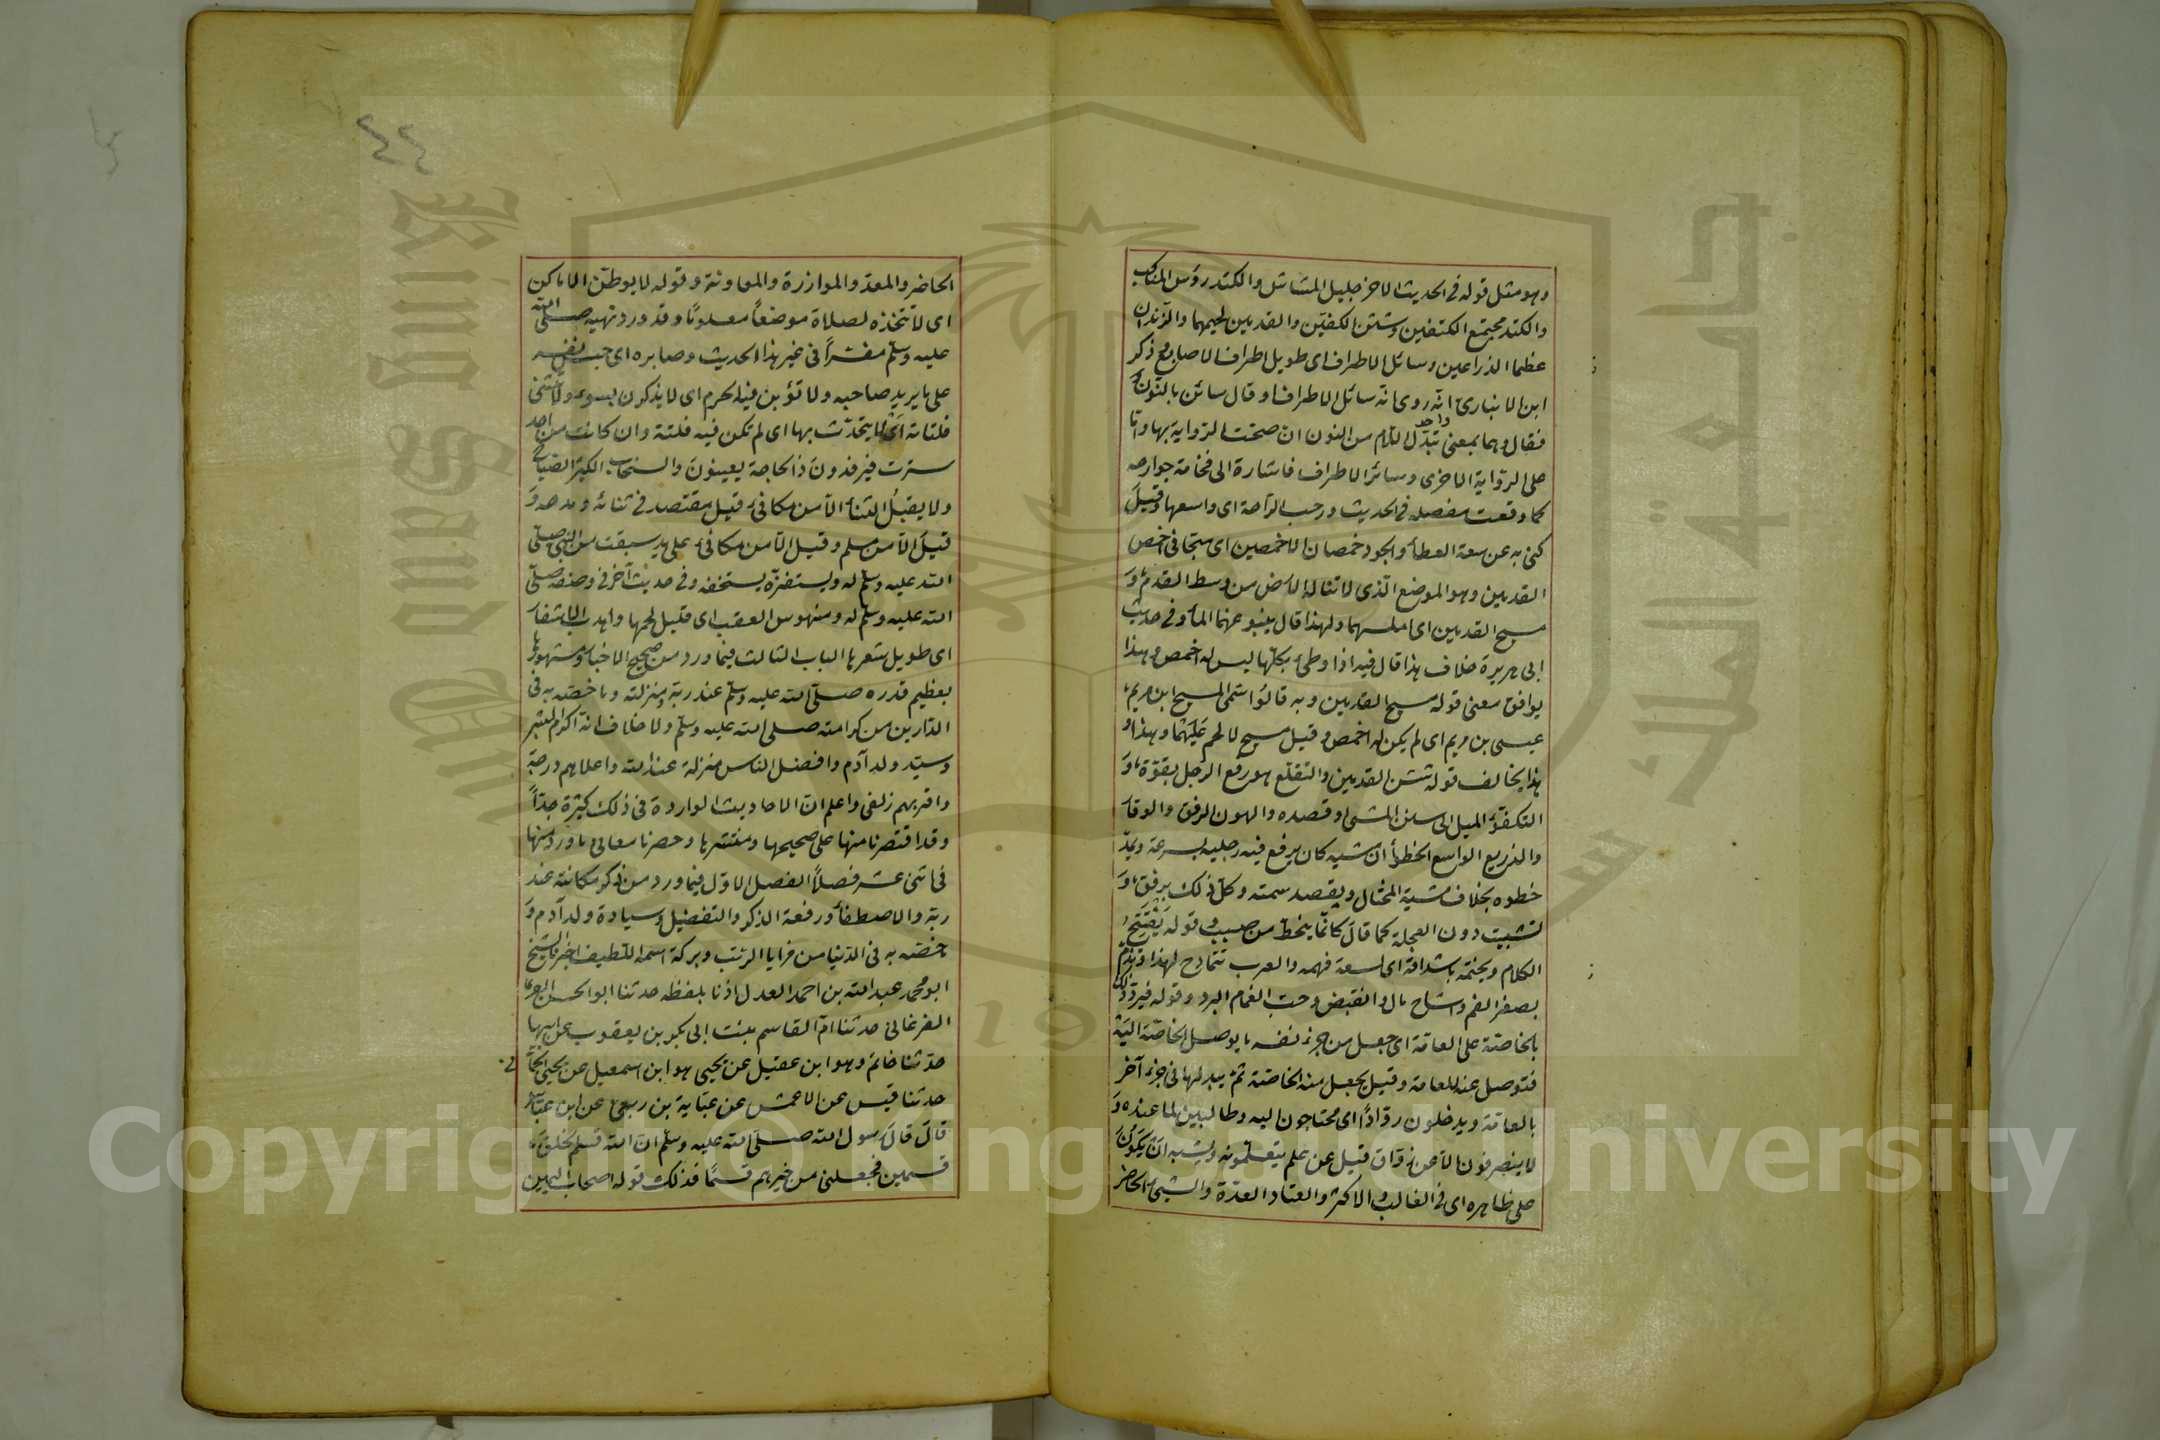 وهو مثل قوله فى الحديث الاخر جليل المشاش والكتد رؤس المناكب
والكتد مجتمع الكتفين وشثن الكفين والقدمين لحيمهما والزندان
عظما الذراعين وسائل الاطراف اى طويل اطراف الاصابع وذكر
ابن الانبارى انه روى انه سائل الاطراف او قال سائن بالنون
فقال وهما بمعنى واحد تبدل اللام من النون ان صحت الرواية بها واما
على الرواية الاخرى وسائر الاطراف فاشارة الى فخامة جوارحه
كما وقعت مفصله فى الحديث ورحب الراحة اى واسعها وقيل
كنى به عن سعة العطاء والجود خمصان الاخمصين اى متجافى اخمص
القدمين وهو الموضع الذى لا تناله الارض من وسط القدم و
مسيح القدمين اى املسهما ولهذا قال ينبو عنهما الماء وفى حديث
ابى هريرة خلاف هذا قال فيه اذا وطى بكلها ليس له اخمص وهذا
يوافق معنى قوله مسيح القدمين وبه قالوا سمى المسيح ابن مريم
عيسى بن مريم اى لم يكن له اخمص وقيل مسيح لا لحم عليهما وهذا
هذا يخالف قوله شثن القدمين والتقلع هو رفع الرجل بقوة و
التكفؤ الميل الى سنن المشى وقصده والهون الرفق والوقار
والذريع الواسع الخطو اى ان مشيه كان يرفع فيه رجليه بسرعة ويمد
خطوه بخلاف مشية المختال ويقصد سمته وكل ذلك برفق و
تثبت دون العجلة كما قال كانما ينحط من صبب وقوله يفتتح
الكلام ويختمه باشداقه اى لسعة فهمه والعرب تتمادح لهذا وتذم
بصغر الفم واشاح مال وانقبض وحب الغمام البرد وقوله فيرد ذلك
بالخاصة على العامة اى جعل من جزء نفسه ما يوصل الخاصة اليه
فتوصل عنه للعامة وقيل يجعل منه للخاصة ثم يبدلها فى جزء آخر
بالعامة ويدخلون روادا اى محتاجون اليه وطالبين لما عنده و
لا ينصرفون الا عن ذواق قيل عن علم يتعلمونه ويشبه ان يكون
على ظاهره اى فى الغالب والاكثر والعتاد العدة والشىء الحاضر
٤٤
الحاضر والمعد والموازرة والمعاونة وقوله لا يوطن الاماكن
اى لا تتخذه لصلاة موضعاً معلومًا وقد ورد نهيه صلى الله
عليه وسلم مفسّراً فى غير هذا الحديث وصابره اى حبس نفسه
على ما يريد صاحبه ولا تؤبن فيه الحرم اى لا يذكرن بسوء ولا تنثى
فلتاته اى لا يتحدث بها اى لم تكن فيه فلتة وان كانت من احد
سترت فيرفدون ذا الحاجة يعينون والسخاب الكثير الصياح
ولا يقبل الثناء الا من مكافئ قيل مقتصد فى ثنائه ومدحه و
قيل الا من مسلم وقيل الا من مكافئ على يد سبقت من النبى صلى
الله عليه وسلم له ويستفزه يستخفه وفى حديث آخر فى وصفه صلى
الله عليه وسلم له ومنهوس العقب اى قليل لحمها واهدب الاشفار
اى طويل شعرها الباب الثالث فيما ورد من صحيح الاخبار ومشهورها
بعظيم قدره صلى الله عليه وسلم عند ربه ومنزلته وما خصه به فى
الدارين من كرامته صلى الله عليه وسلم ولا خلاف انه اكرم البشر
وسيد ولد آدم وافضل الناس منزلة عند الله واعلاهم درجة
واقربهم زلفى واعلم ان الاحاديث الواردة فى ذلك كثيرة جدّاً
وقد اقتصرنا منها على صحيحها ومنتشرها وحصرنا معانى ما ورد منها
فى اثنى عشر فصلاً الفصل الاول فيما ورد من ذكر مكانته عند
ربه والاصطفاء ورفعة الذكر والتفضيل وسيادة ولد آدم و
ما خصه به فى الدنيا من مزايا الرتب وبركة اسمه اللطيف اخبرنا الشيخ
ابو محمد عبد الله بن احمد العدل اذنا بلفظه حدثنا ابو الحسن
الفرغانى حدثنا ام القاسم بنت ابى بكر بن يعقوب عن ابيها
حدثنا حاتم وهو ابن عقيل عن يحيى هو ابن اسمعيل عن يحيى الحما
نى
حدثنا قيس عن الاعمش عن عباية بن ربعى عن ابن عباس
قال قال رسول الله صلى الله عليه وسلم ان الله قسم الخلق
قسمين فجعلنى من خيرهم قسمًا فذلك قوله اصحاب اليمين
Copyright © King Saud University
King Saud University
جامعة الملك سعود